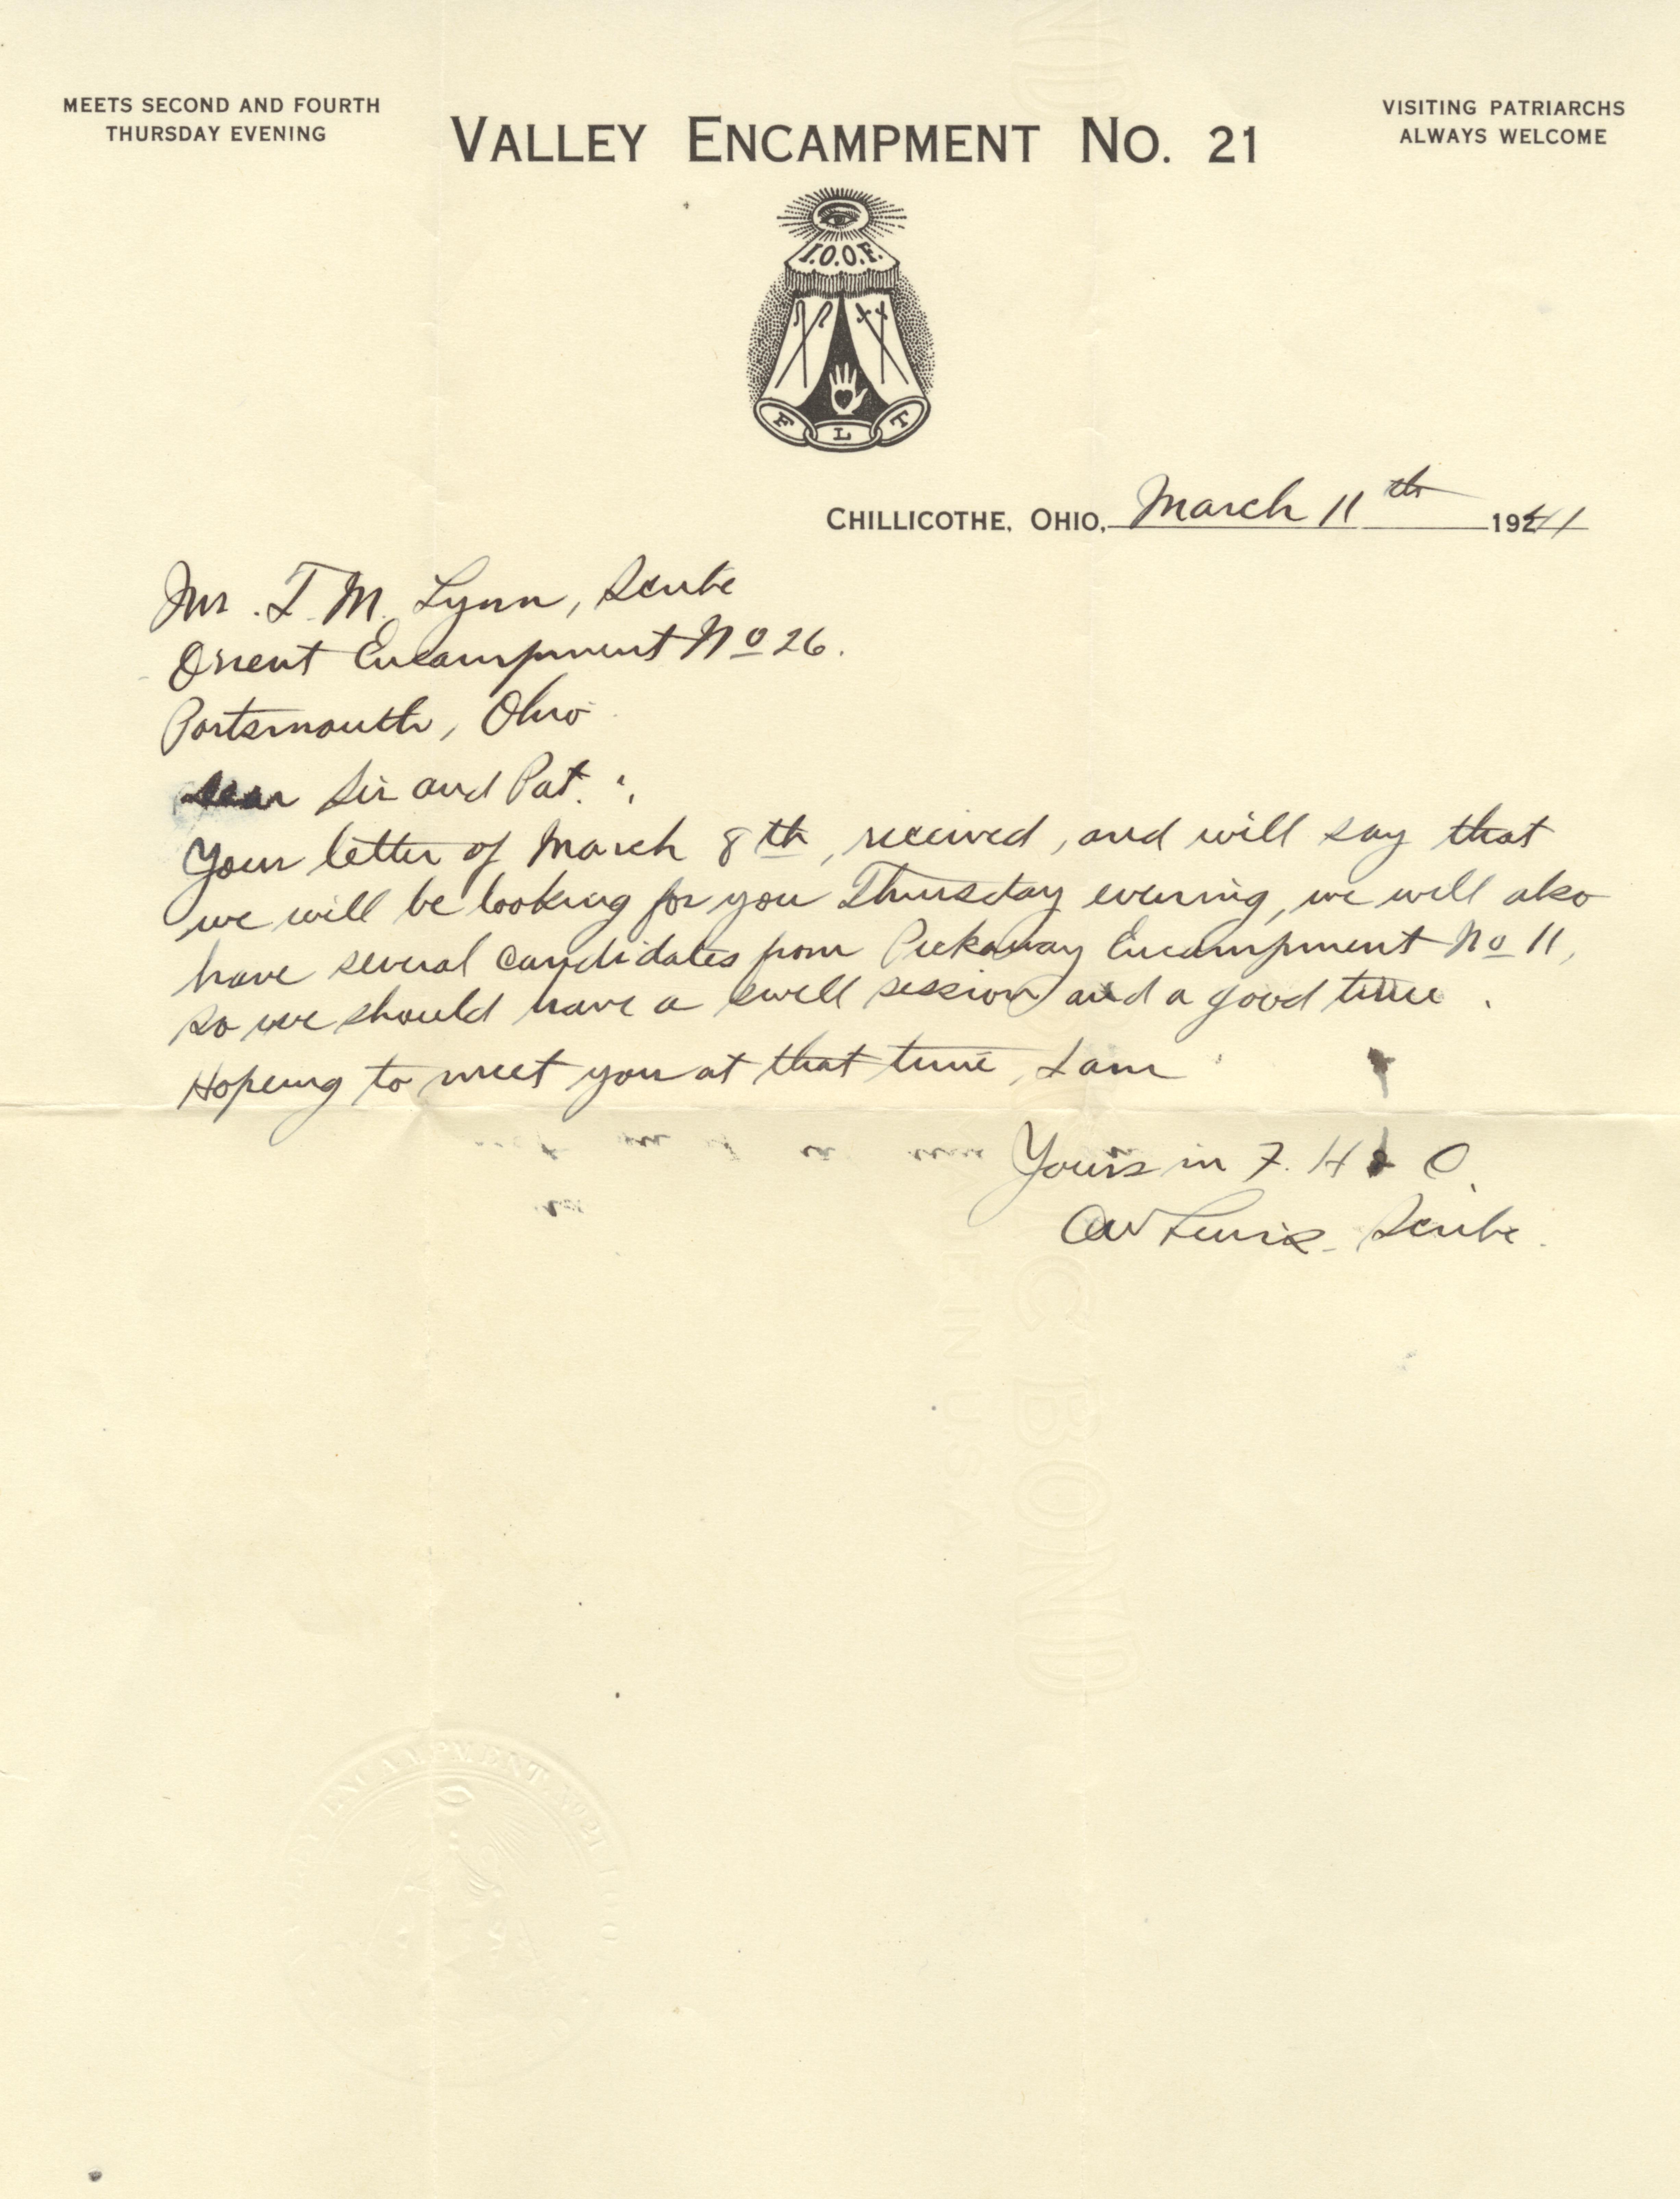 MEETS SECOND AND FOURTH
THURSDAY EVENING
VALLEY ENCAMPMENT NO. 21
VISITING PATRIARCHS
ALWAYS WELCOME
I.O.O.F.
F L T
CHILLICOTHE, OHIO, March 11th 1941
Mr. T. M. Lynn, Scribe
Orient Encampment No 26.
Portsmouth, Ohio
Dear Sir and Pat. :
Your letter of March 8th, received, and will say that
we will be looking for you Thursday evening, we will also
have several candidates from Pickaway Encampment No 11,
so we should have a swell session and a good time.
Hopeing to meet you at that time, I am
Yours in F. H & C.
Lewis - Scribe.
BOND
ENCAMPMENT No 21 I.O.O.